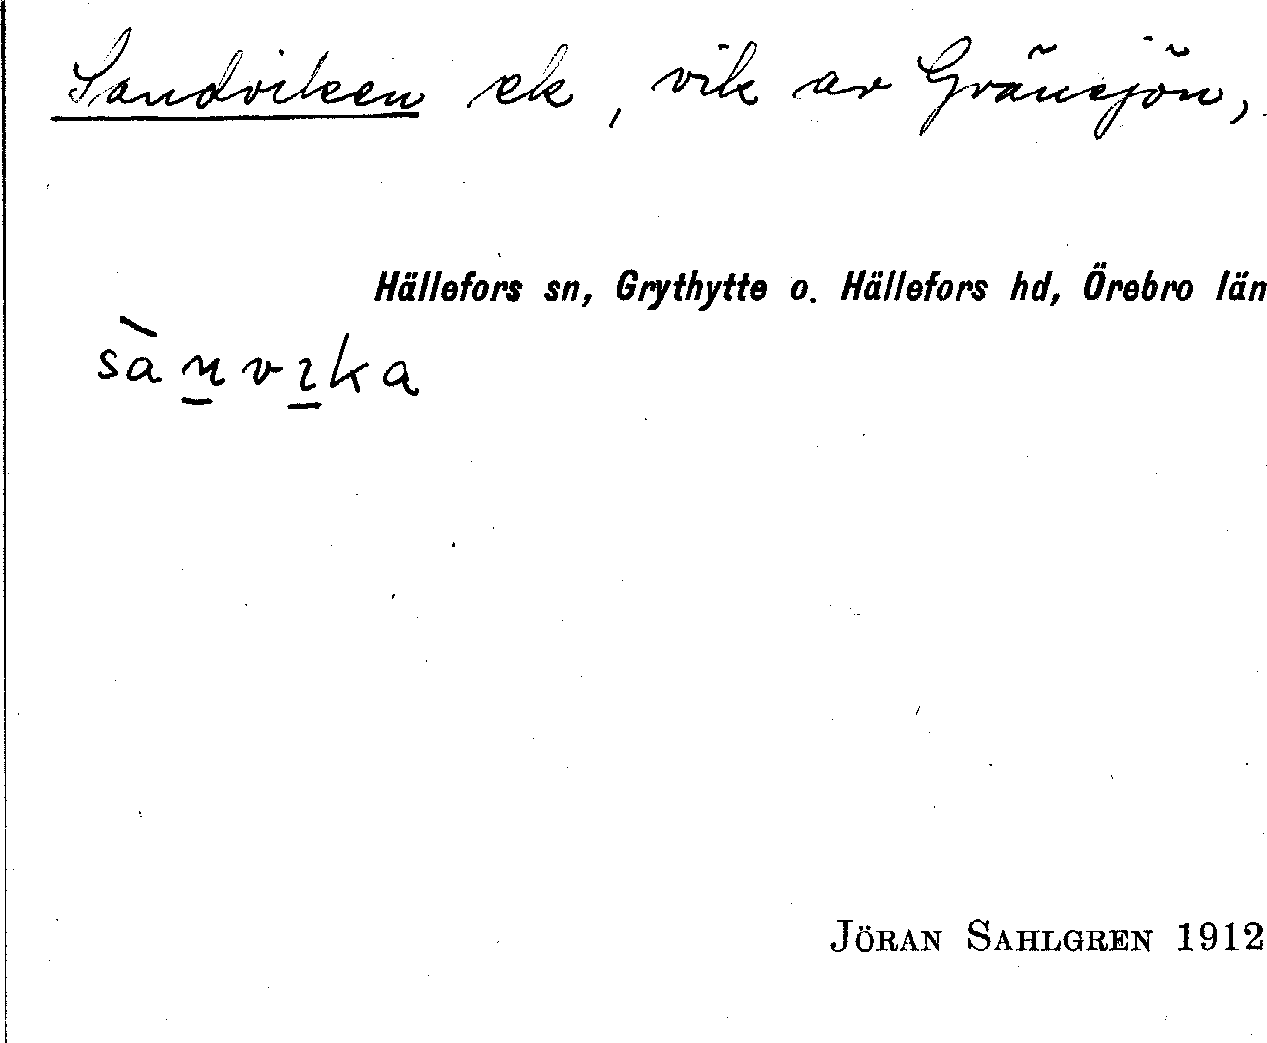 Sandviken ek, vik av Gränsjön,
Hällefors sn, Grythytte o. Hällefors hd, Örebro län
sànvıka
JÖRAN SAHLGREN 1912